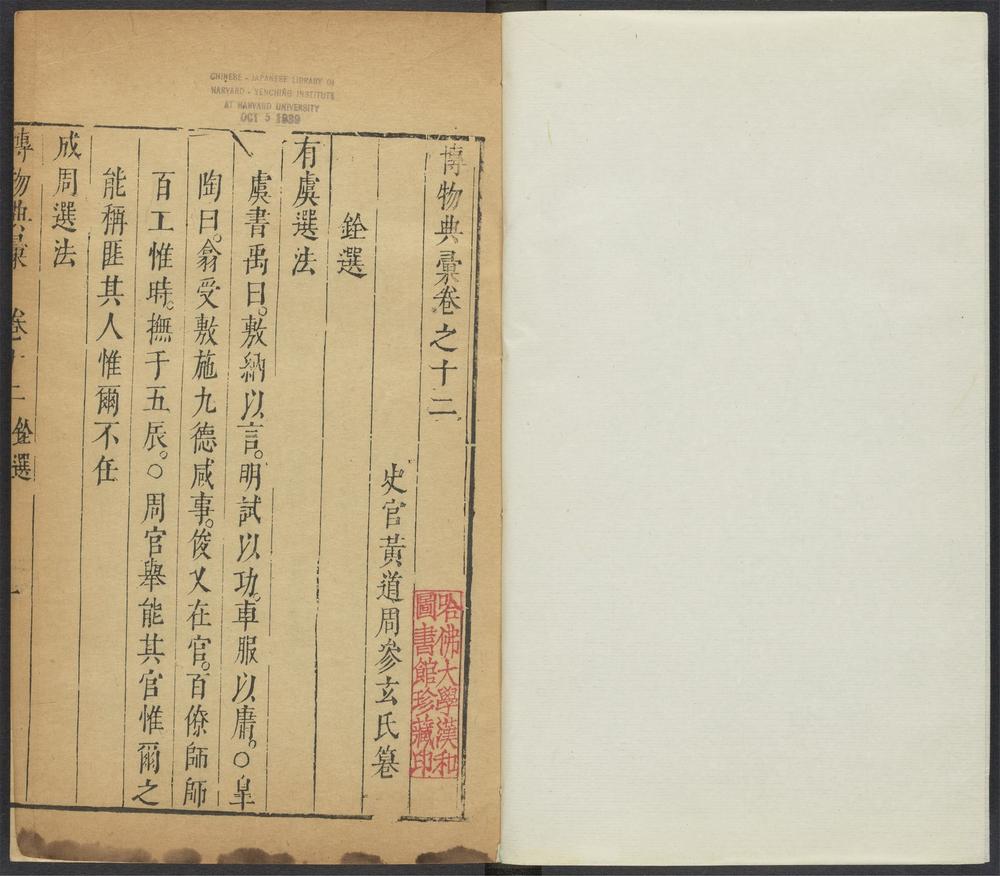 CHINESE - JAPANESE LIBRARY OF
HARVARD - YENCHING INSTITUTE
AT HARVARD UNIVERSITY
OCT 5 1939
博物典彙卷之十二
史官黃道周參玄氏纂
哈佛大學漢和
圖書館珍藏印
銓選
有虞選法
虞書禹曰。敷納以言。明試以功。車服以庸。○皐
陶曰。翕受敷施九德咸事。俊乂在官。百僚師師
百工惟時。撫于五辰。○周官舉能其官惟爾之
能稱匪其人惟爾不任
成周選法
博物典彙 卷十二 銓選 一